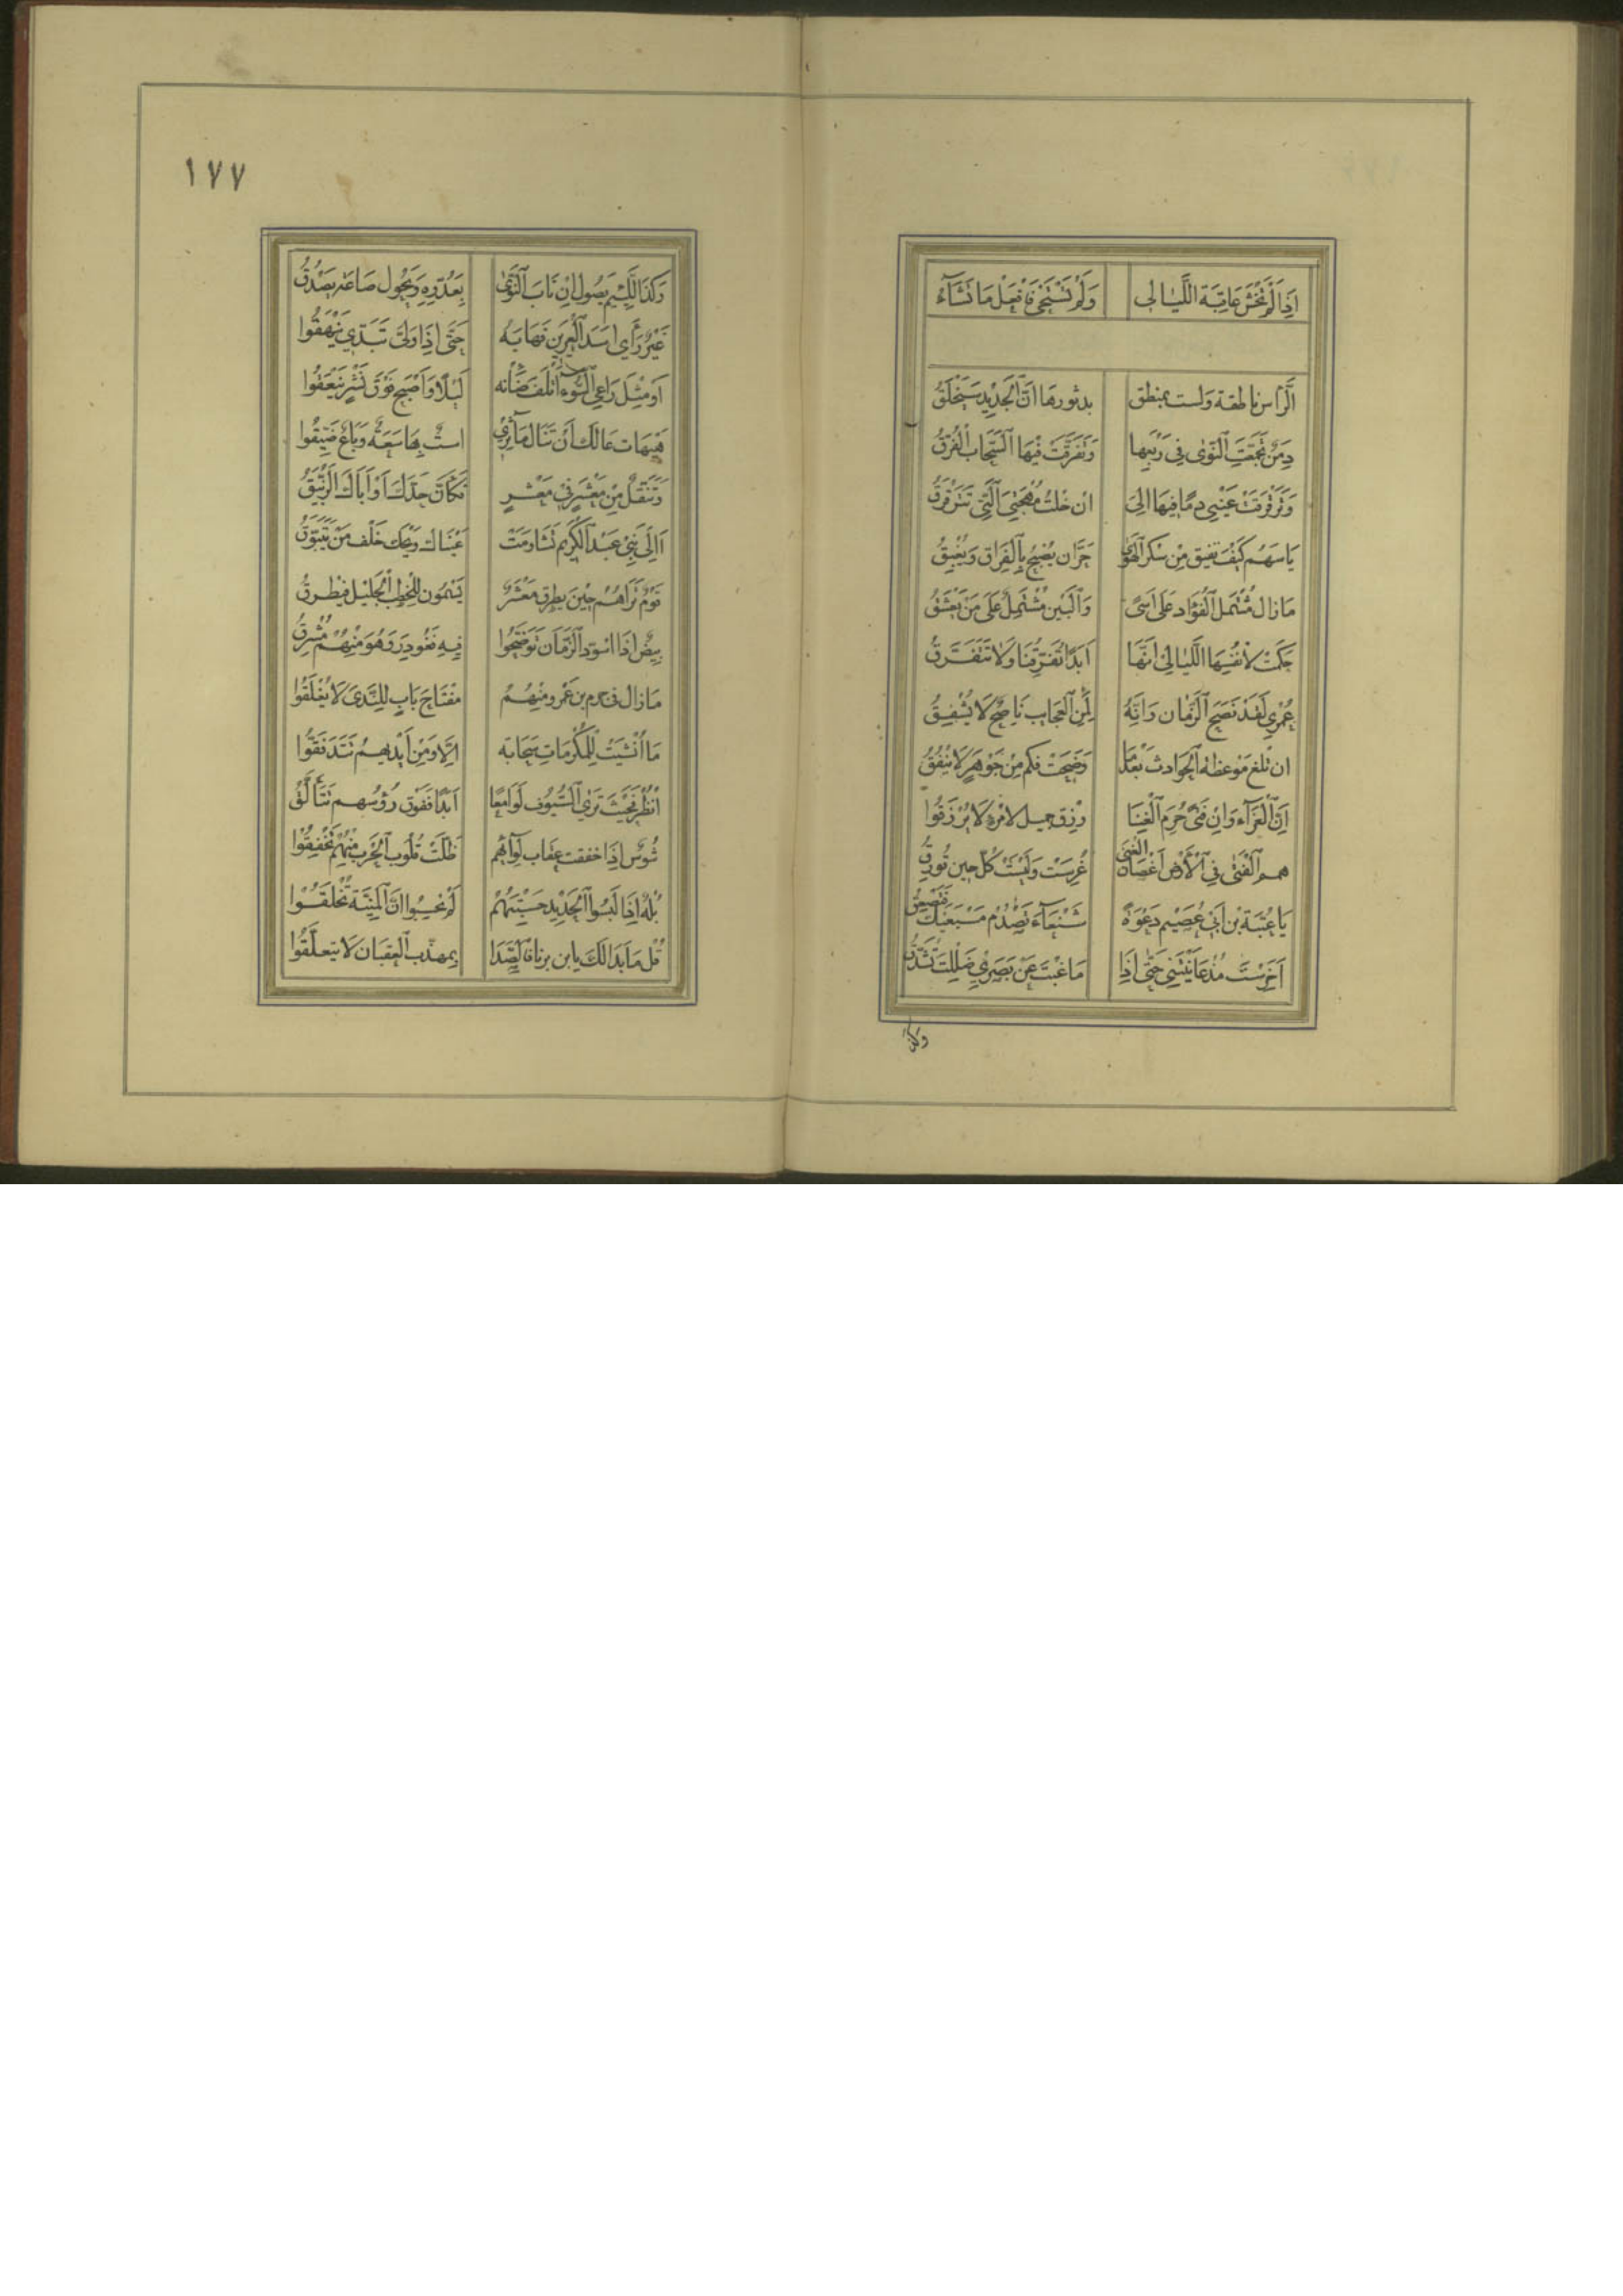 اِذَا لَمْ تَخْشَ عَاقِبَةَ اللَّيَالِي وَلَمْ تَسْتَحْيِ فَافْعَلْ مَا تَشَآءُ
الدَّارُ ناطقة وَلست بمنطق بدثورها اَنَّ الْجَدِيدَ سَيَخْلَقُ
دِمَنٌ تَجَمَّعَتِ النَّوٰى فِي رَبْعِهَا وَتَفَرَّقَتْ فِيْهَا السَّحَابُ الْفُرَّقُ
وَتَرَقْرَقَتْ عَيْنِي دمًا فِيهَا اِلَى ان خلتُ مُهْجَتِيَ الَّتِي تَتَرَقْرَقُ
يَا سَهْمُ كَيْفَ تفيق مِنْ سكر الْهَوٰى حَرَّان يُصْبِحُ بِالْفِرَاقِ وَيُغْبِقُ
مَا زال مُشْتَمِل الْفُؤَاد عَلَى اَسًى وَالْبَيْن مُشْتَمِلٌ عَلَى مَنْ يَعْشَقُ
حَكَمَتْ لِاَنْفُسِهَا اللَّيَالِيْ انَّهَا اَبَدًا تُفَرِّقُنَا وَلَا تَتَفَرَّقُ
عُمْرِي لَقَدْ نَصَحَ الزَّمَان وَاِنَّهُ لَمِنَ الْعَجَايِبِ نَاصِحٌ لَا يُشْفِقُ
ان تلغ مَوْعِظة الْحَوَادث بَعْدَمَا وَضَحَتْ فكم مِنْ جَوْهَرٍ لَا يَنْفُقُ
اِنَّ الْعَزَآءَ وَاِنْ فَتًى حُرِمَ الْغِنَا رزق جميل لامْرِءٍ لَا يُرْزَقُوا
همم الْفَتَى فِي الْاَرْضِ اَغْصَانُ الْغِنَى غُرِسَتْ وَلَيْسَتْ كُلَّ حين تُورِقُ
يَا عُتْبَةَ بْن اَبِي عُصَيْم دَعْوَةً شَنْعَآءَ تَصْدُمُ مَسْمَعَيْكَ فَتَصْعَقُ
اَخَرِسْتَ مُذْ عَايَنْتَنِي حَتَّى اِذَا مَا غبْتَ عَنْ بَصَرِي ظَلِلْتَ تَشَدَّقُ
وكذ
١٧٧
وَكَذَا اللَّئِيْم يَصُول اِنْ نَاتِ النَّوٰى بِعَدُوِّهِ وَيَحُول صَاعة يَصْدُقُ
عَيْرٌ رَأَى اَسَدَ الْعَرِين فَهَابَهُ حَتَّى اِذَا وَلَّى تَبَدَّى يَنْهَقُوا
اَوْ مِثْلَ رَاعِي السُّوْءِ اَتْلَفَ ضَأْنَه لَيْلًا وَاَصْبَحَ فَوْقَ نَشْزٍ يَنْعَقُوا
هَيْهَات غَالَكَ اَنْ تَنَالَ مَآثِرِي استٌ بِهَا سَعَةٌ وَبَاعٌ ضَيِّقُوا
وَتَنَقُّلٌ مِنْ مَعْشَرٍ فِي مَعْشَرٍ فَكَاَنَّ جَدَّكَ اَوْ اَبَاكَ الزِّئْبَقُ
اَاِلَى بَنِي عَبْد الْكَرِيْم تَشَاوَسَتْ عَيْنَاكَ وَيْحَكَ خَلْف مَنْ
قَوْمٌ تَرَاهُمْ حِيْنَ يطرق مَعْشَرٌ يَسْمُون للْخَطْب الْجَلِيْل فيُطرقُ
بِيْضٌ اِذَا اسْوَدَّ الزَّمَان تَوَضَّحُوا فِيهِ فَغُودِرَ وَهُوَ مِنْهُمْ مُشْرِقُ
مَا زال في جرم بن عَمْرو مِنْهُمُ مِفْتَاحُ بَابٍ لِلنَّدَى لَا يُغْلَقُوا
مَا اُنْشِئَتْ لِلْمَكْرُمَاتِ سَحَابَة اِلَّا وَمِنْ اَيْدِيهِمُ تَتَدَفَّقُوا
اُنْظُرْ فَحَيْثُ تَرَى السُّيُوف لَوَامِعًا اَبَدًا فَفَوْق رُؤسهم تَتَأَلَّقُ
شُوْسٌ اِذَا خفقت عقاب لوَآئِهِم ظَلَّتْ قُلُوبُ الْحَرْب مِنْهُمْ تَخْفِقُوا
بُلْهٌ اِذَا لَبِسُوا الْحَدِيْد حَسِبْتَهُمْ لَمْ يَحْسِبُوا اَنَّ الْمَنِيَّةَ تُخْلَقُوا
قُل مَا بَدَا لَكَ يا بن فَالصَّدَا بِمهذَّب الْعِقْيَان لَا يَتَعَلَّقُوا